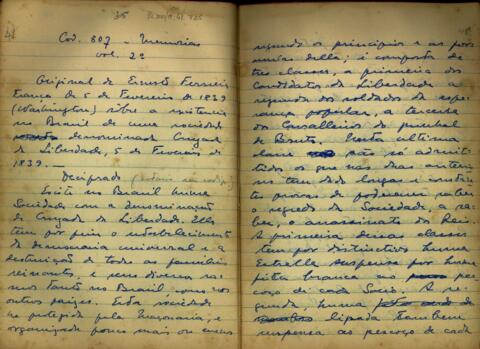 35
Cod. 807 – Memorias
vol. 2º
Original de Ernesto Ferreira
França, de 5 de Fevereiro de 1839
(Washington) sôbre a existencia
no Brasil de uma sociedade
denominada Cruzada
de Liberdade, 5 de Fevereiro de
1839. —
Decifrado
Existe no Brasil huma
Sociedade com a denominação
de Cruzada de Liberdade. Ella
tem por fim o estabelecimento
da democracia universal e a
destruição de todas as familias
reinantes, e seus diversos ra-
mos tanto no Brasil como nos
outros paizes. Esta sociedade
he protegida pela Maçonaria, e
organizada pouco mais ou menos
segundo os principios e as for-
mulas della; é composta de
tres classes, a primeira dos
Candidatos da Liberdade a
segunda dos soldados da espe-
rança popular, a terceira
dos Cavalleiros do punhal
de Bruto. Nesta ultima
classe não são admit-
tidos os que não dias antes
tem dado lugar e
provas de poderem
o segredo da Sociedade, a sa-
ber, o assassinato dos Reis.
A primeira dessas classes
tem por distinctivo huma
Estrella suspensa por huma
fita branca ao pes-
coço de cada Socio. A se-
gunda, huma
lipada tambem
suspensa ao pescoço de cada